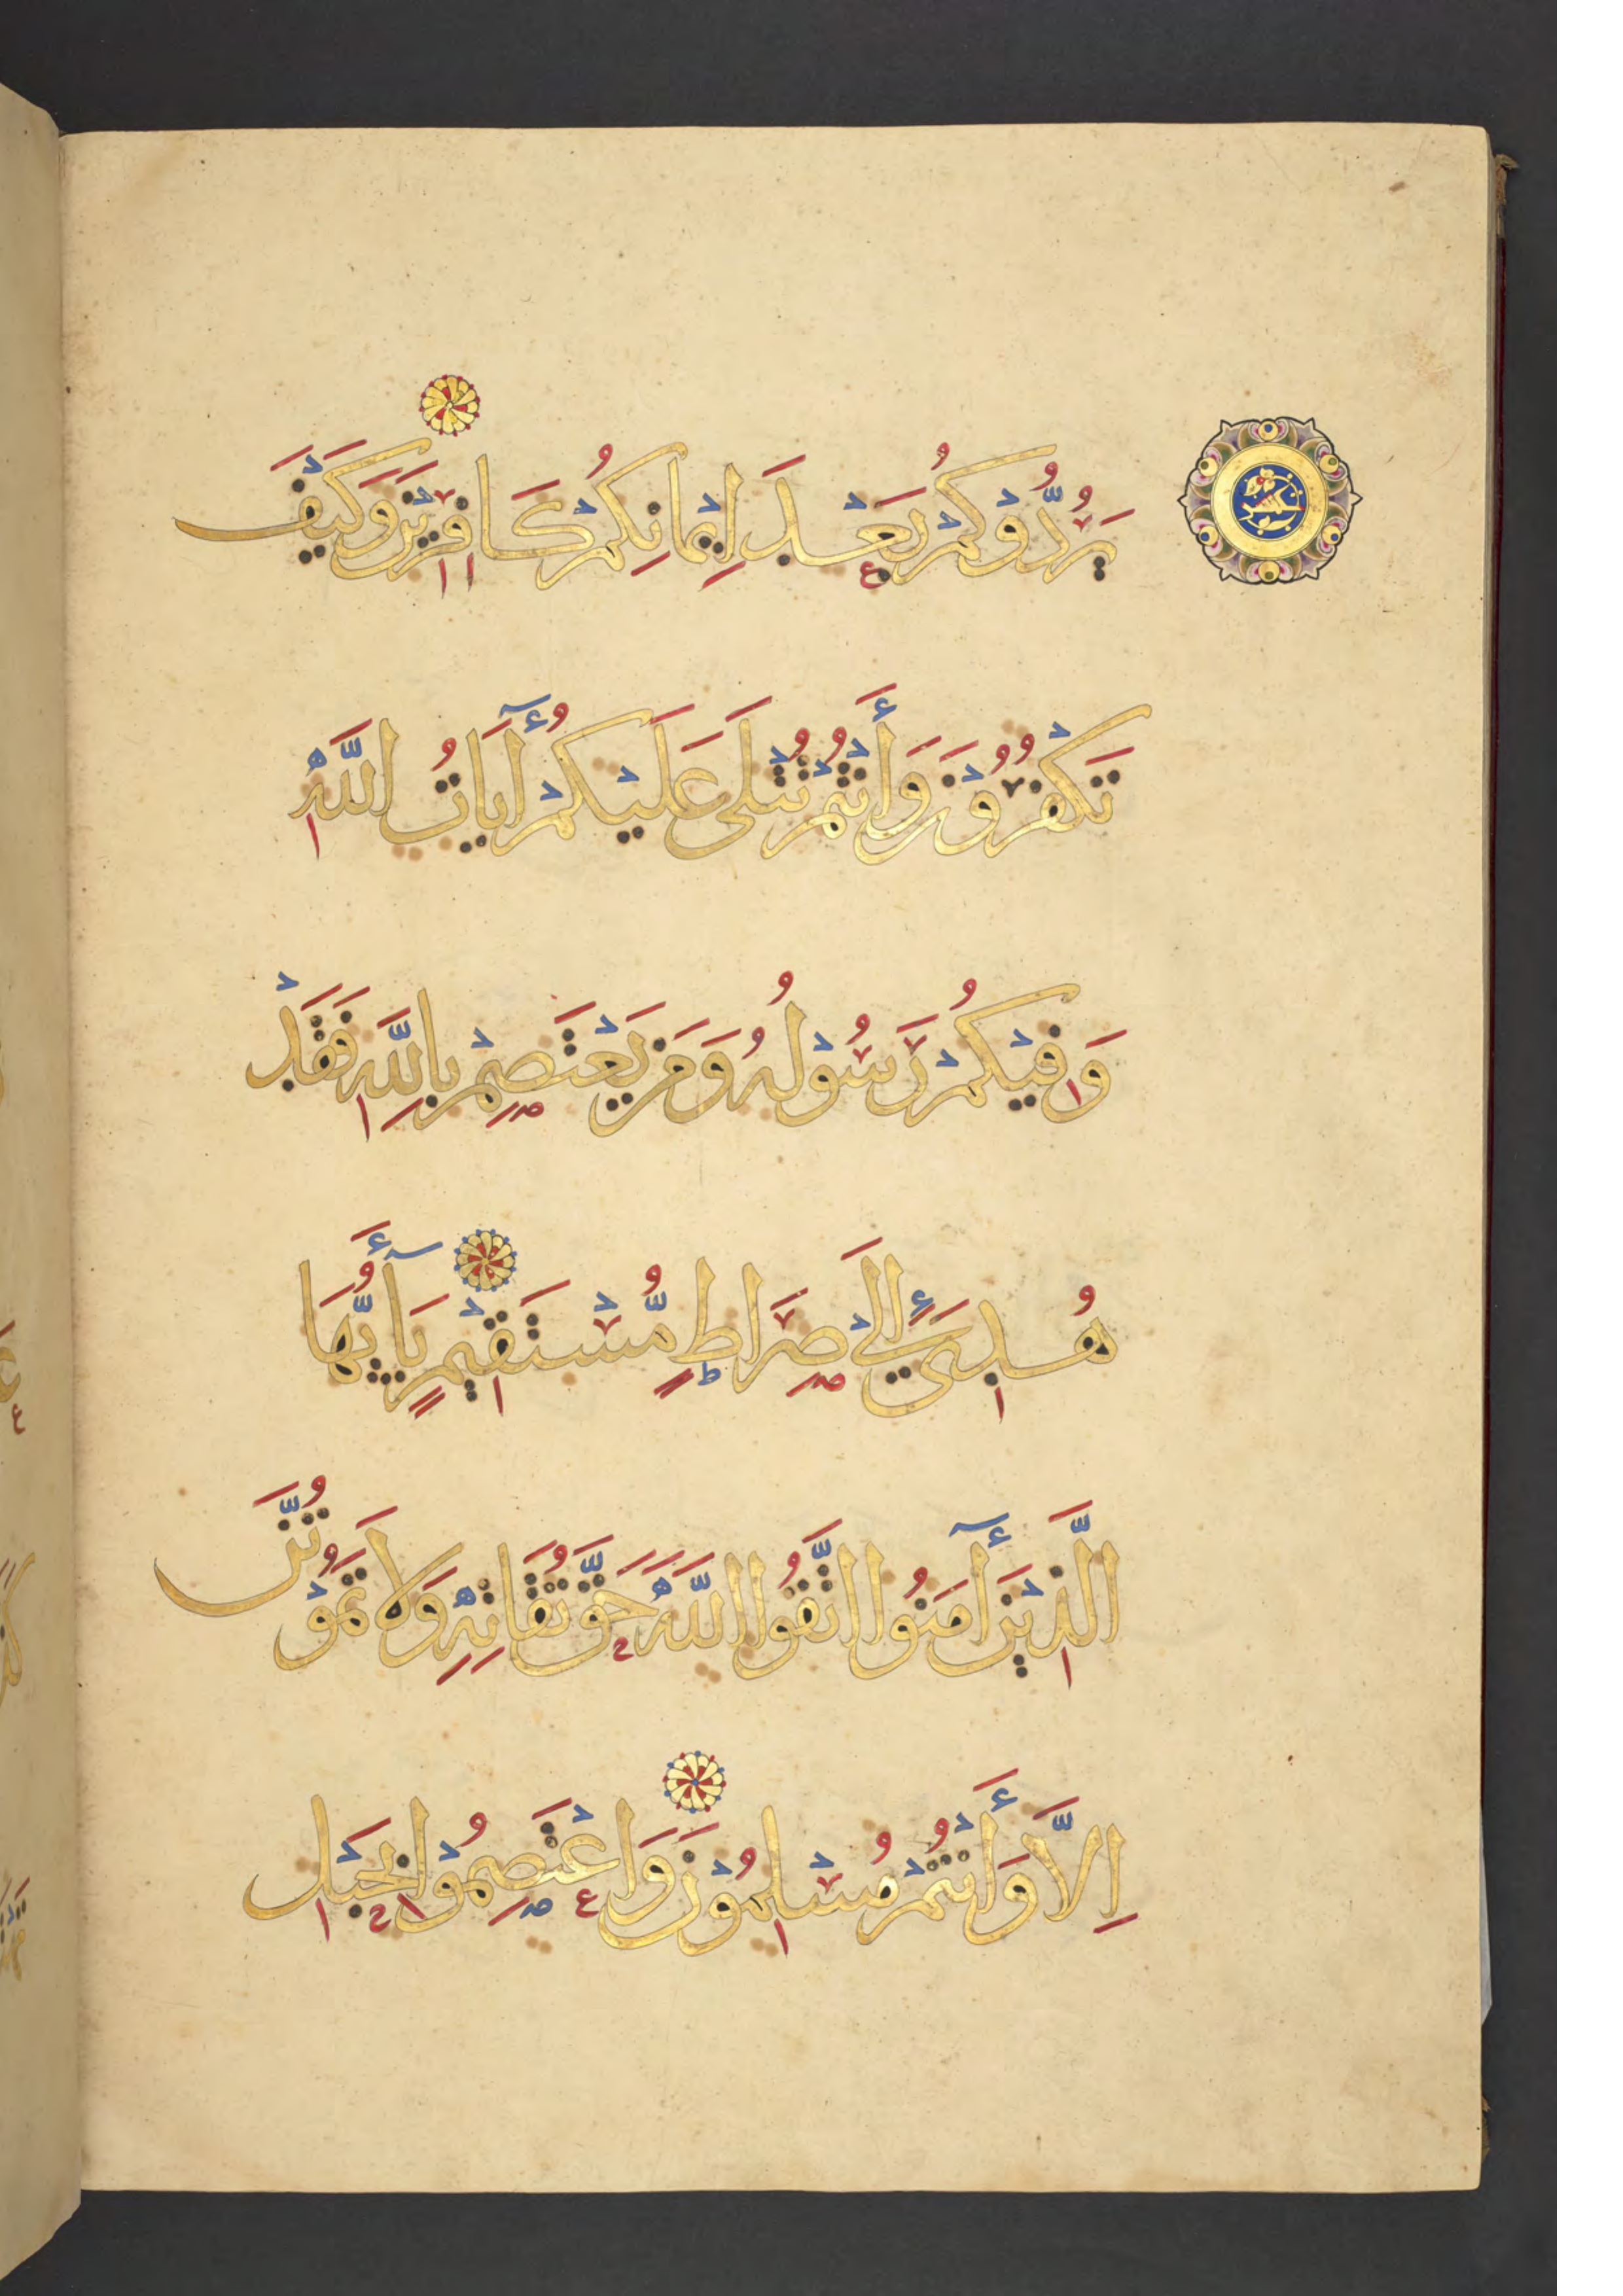 يَرُدُّوْكُمْ بَعْدَ اِيْمَانِكُمْ كَافِرِيْنَ وَكَيْفَ
تَكْفُرُوْنَ وَأَنْتُمْ تُتْلَى عَلَيْكُمْ آيَاتُ اللَّهِ
وَفِيْكُمْ رَسُوْلُهُ وَمَنْ يَعْتَصِمْ بِاللَّهِ فَقَدْ
هُدِيَ إِلَى صِرَاطٍ مُّسْتَقِيْمٍ يَآأَيُّهَا
الَّذِيْنَ آمَنُوا اتَّقُوا اللَّهَ حَقَّ تُقَاتِهِ وَلَا تَمُوْتُنَّ
اِلَّا وَأَنْتُمْ مُسْلِمُوْنَ وَاعْتَصِمُوْا بِحَبْلِ